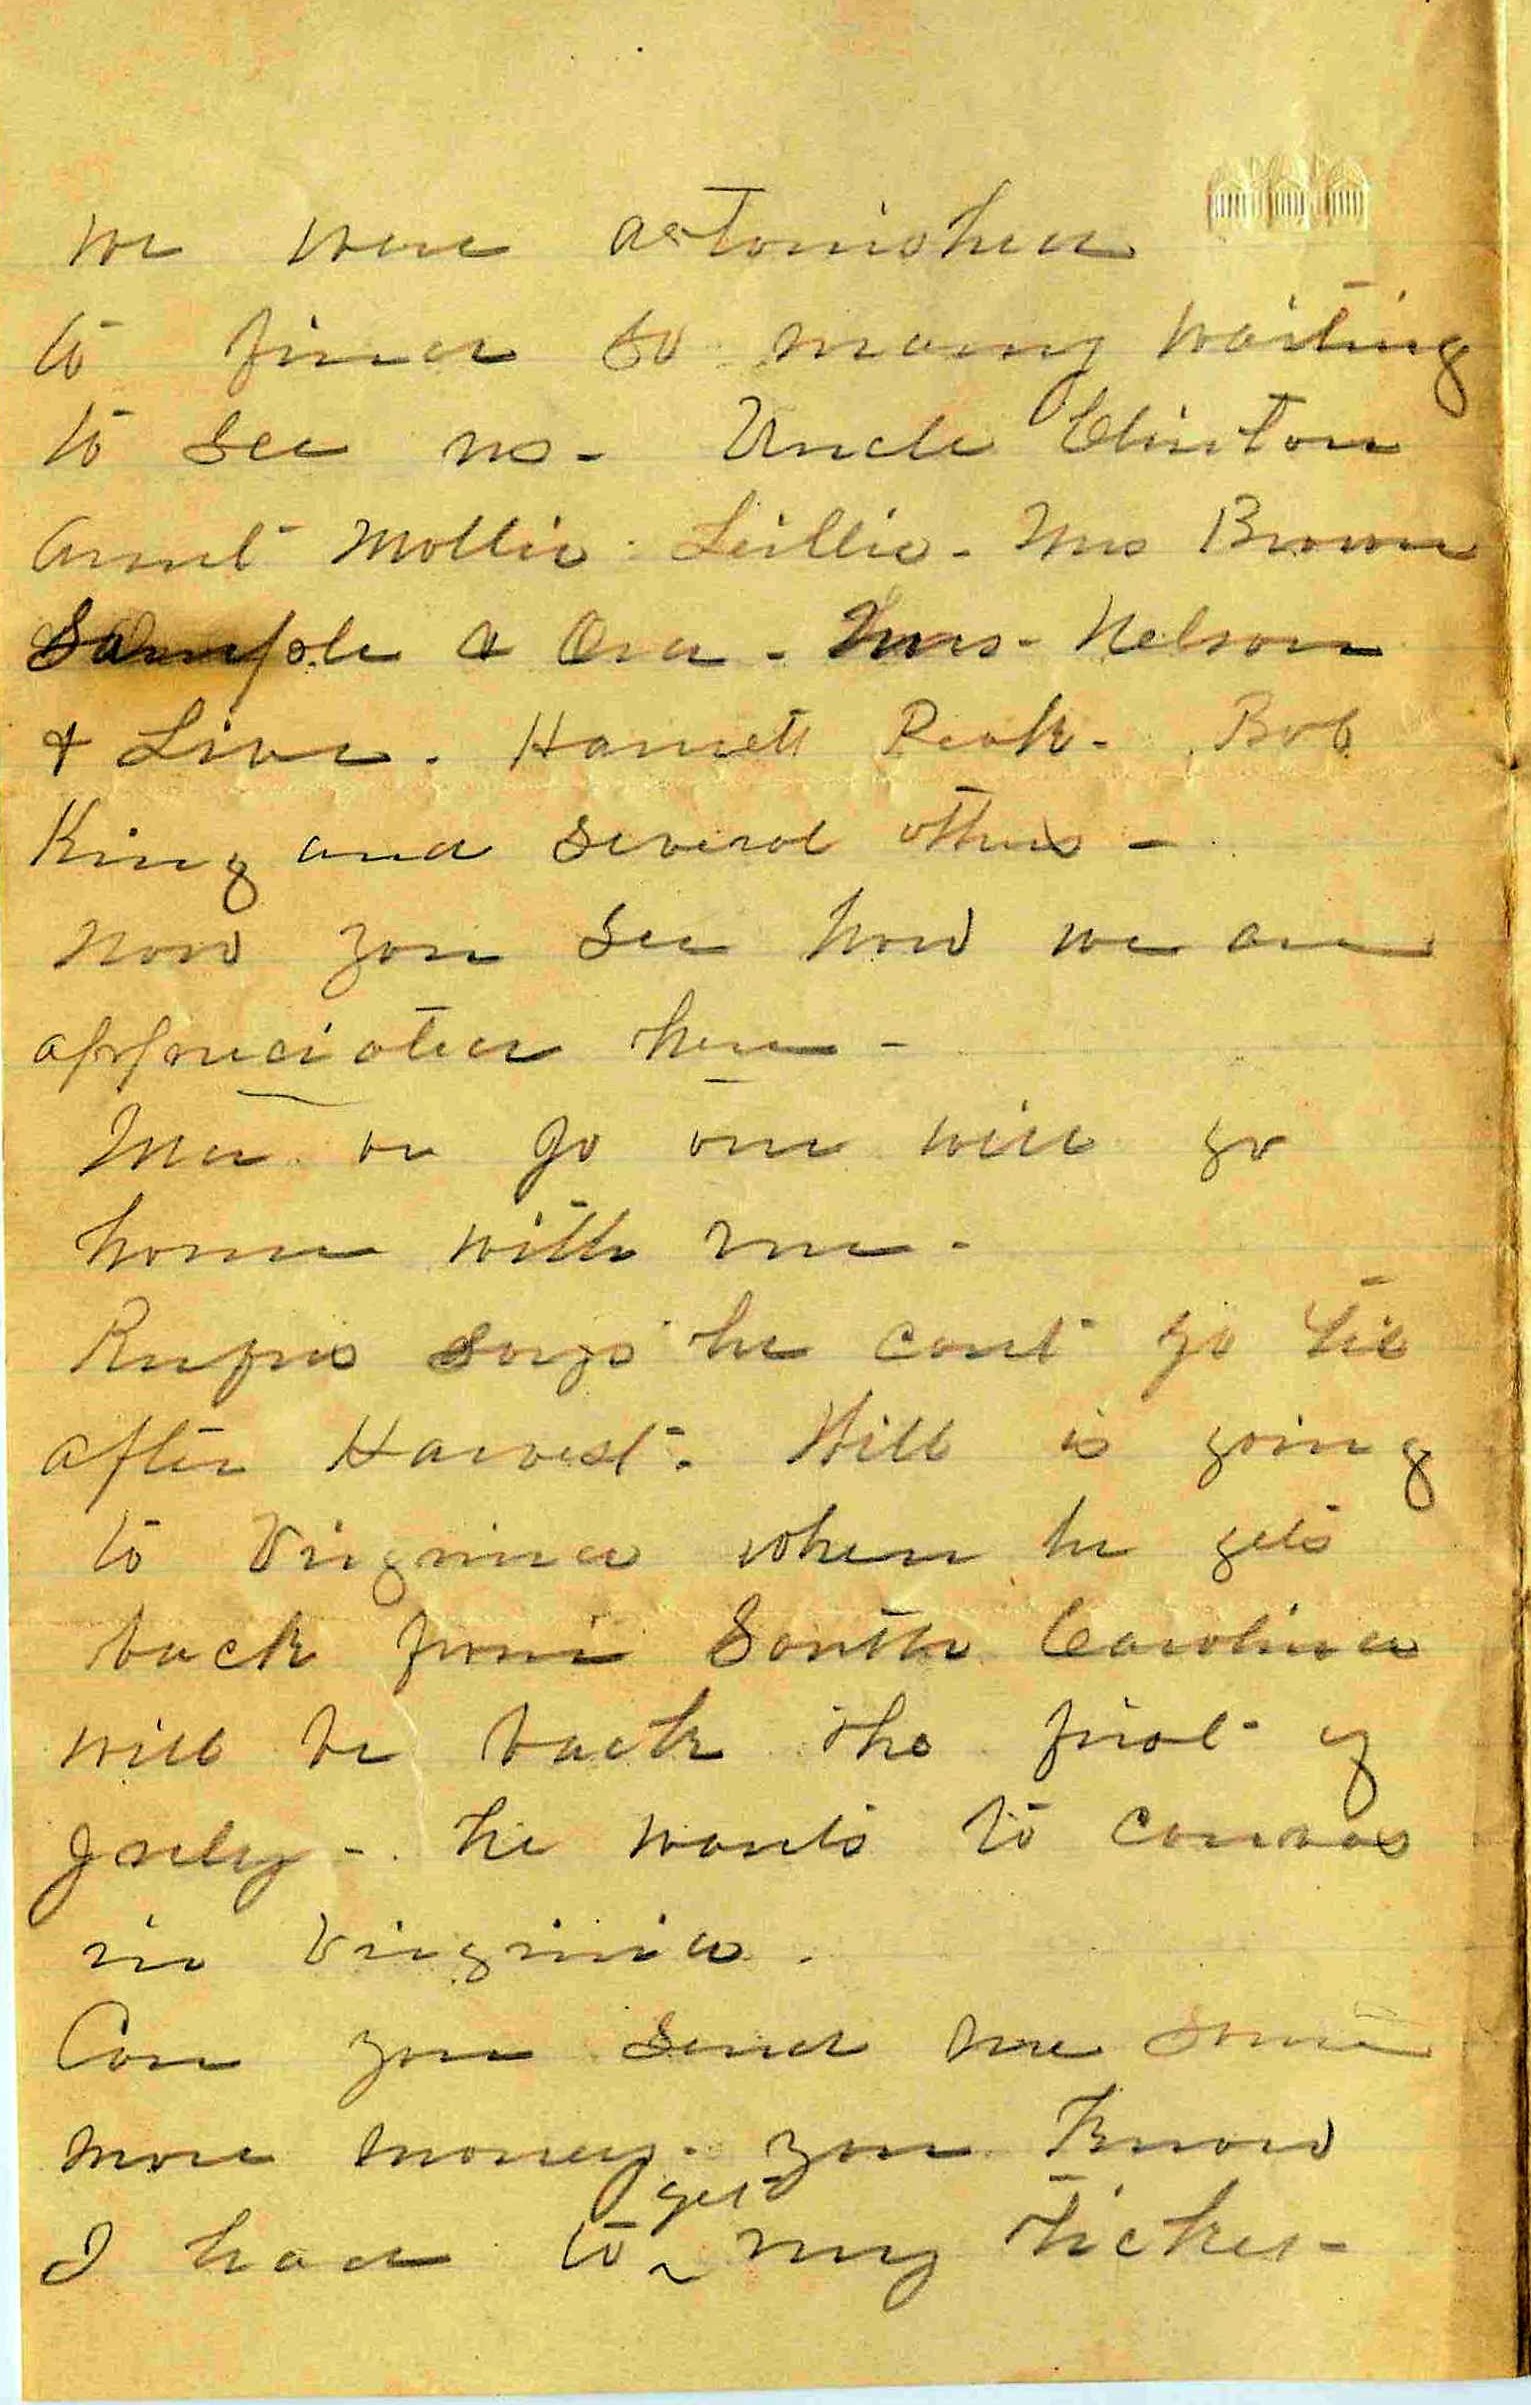 we were astonished
to find so many waiting
to see us - Uncle Clinton
Aunt Mollie - Lillie - Mrs Brown
Sample & Ora - Mrs - Nelson
& Live - Harriett Peak - Bob
King and several others -
now you see how we are
appreciated here -
Ma or Jo one will go
home with me -
Rufus says he cant go till
after Harvest - Will is going
to Virginia when he gets
back from South Carolina
will be back the first of
July - he wants to canvas
in Virginia .
Can you send me some
more money - you Know
I had to get my ticket -